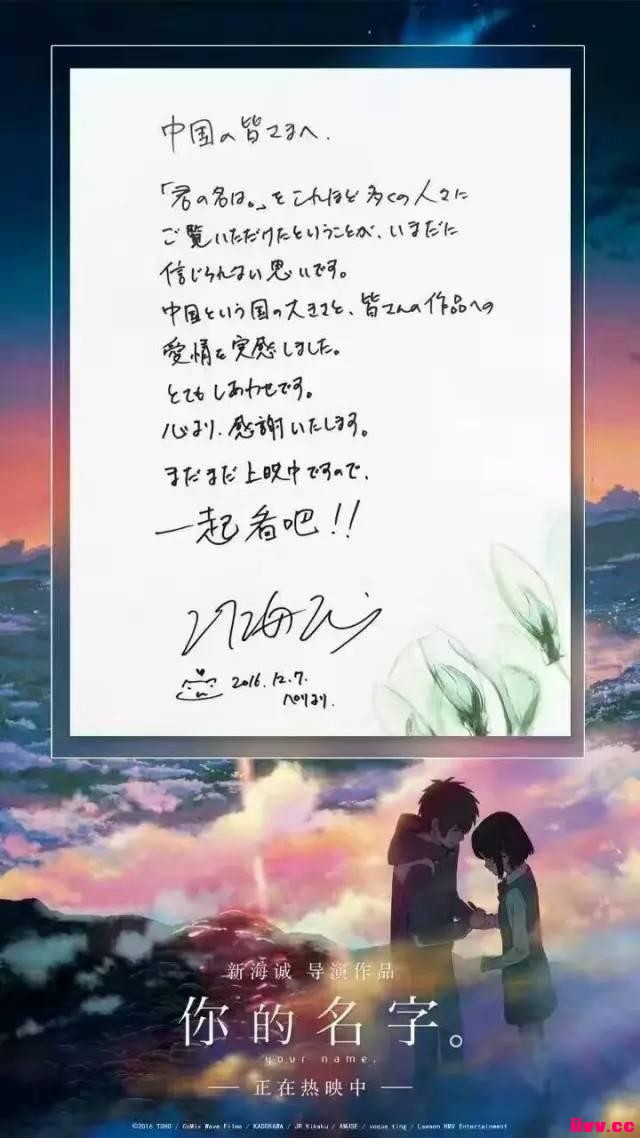 中国の皆さまへ.
「君の名は。」をこれほど多くの人々に
ご覧いただけたということが、いまだに
信じられない思いです。
中国という国の大きさと、皆さんの作品への
愛情を実感しました。
とてもしあわせです。
心より、感謝いたします。
まだまだ上映中ですので、
一起看吧!!
2016.12.7.
パリより.
新海诚 导演作品
你的名字。
your name.
正在热映中
©2016 TOHO / CoMix Wave Films / KADOKAWA / JR Kikaku / AMUSE / voque ting / Lawson HMV Entertainment